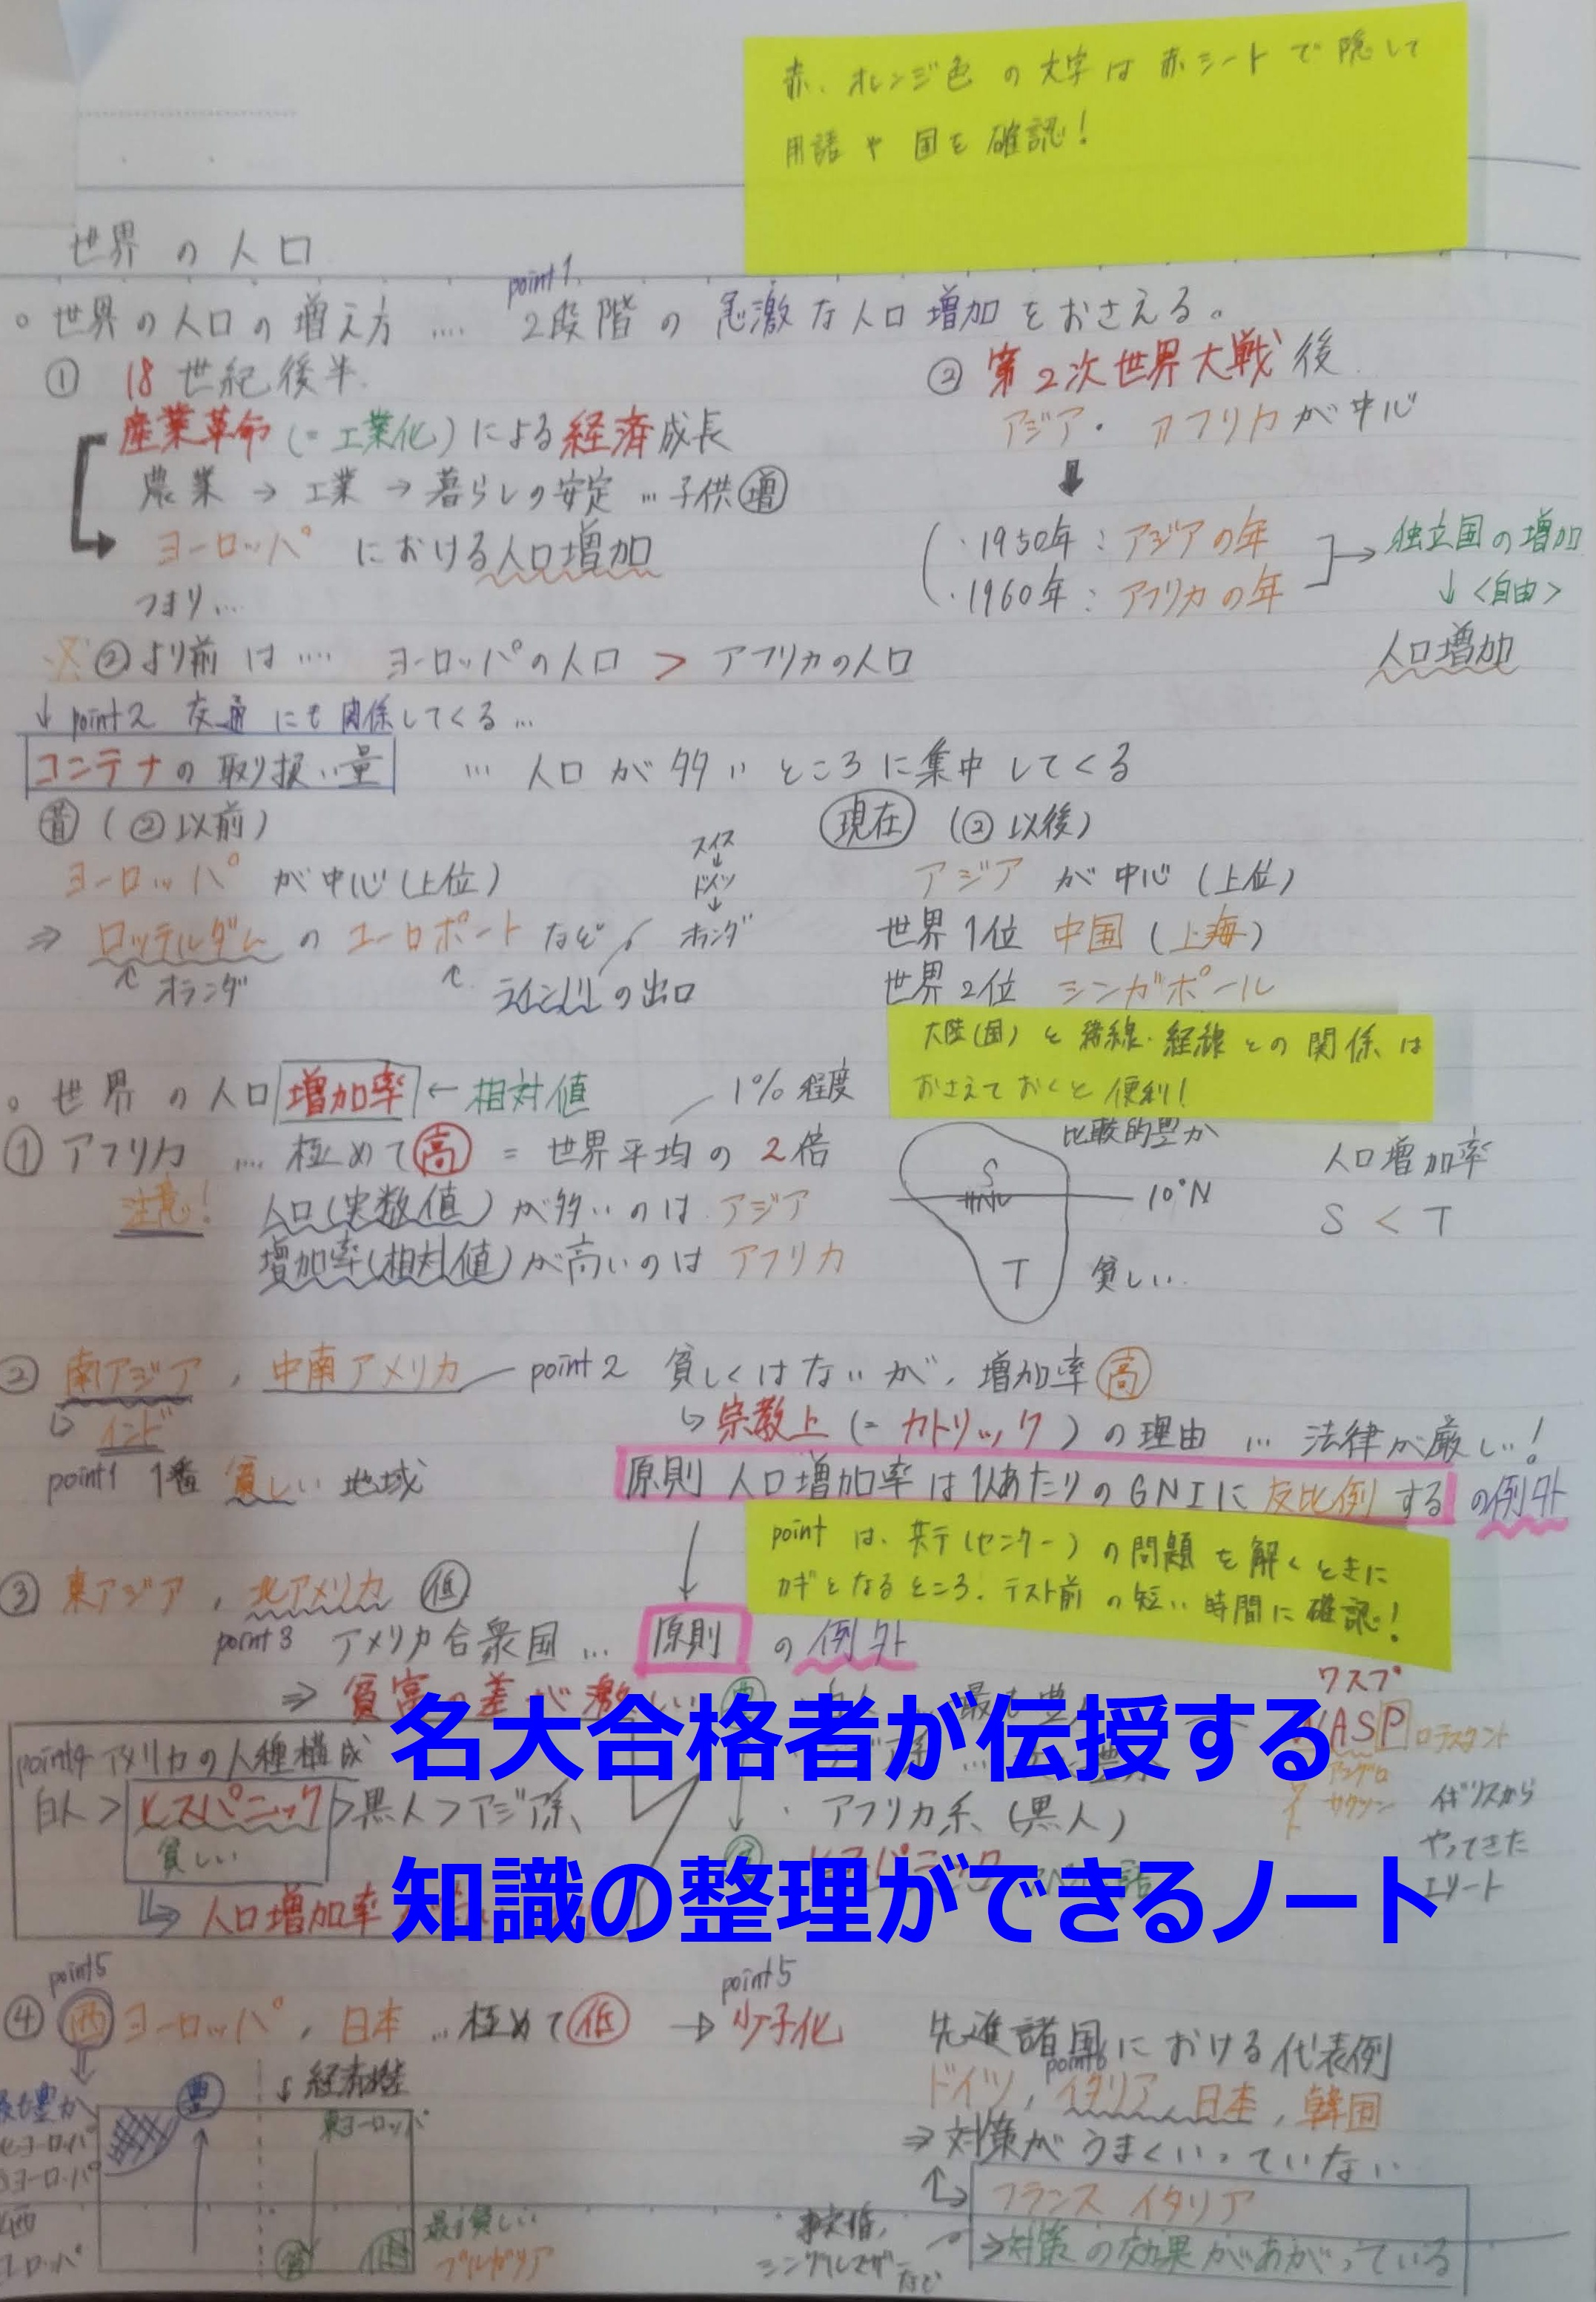 赤、オレンジ色の文字は赤シートで隠して
用語や国を確認！
世界の人口
point1.
。世界の人口の増え方 .... 2段階の急激な人口増加をおさえる。
① 18世紀後半
産業革命(=工業化)による経済成長
農業→工業→暮らしの安定…子供増
ヨーロッパにおける人口増加
つまり…
② 第2次世界大戦後
アジア・アフリカが中心
・1950年：アジアの年
・1960年：アフリカの年
独立国の増加
↓<自由>
人口増加
※②より前は…. ヨーロッパの人口 > アフリカの人口
↓point2 交通にも関係してくる…
コンテナの取り扱い量 … 人口が多いところに集中してくる
昔(②以前)
ヨーロッパが中心(上位)
⇒ロッテルダムのユーロポートなど
↑オランダ
↑ライン川の出口
スイス
↓
ドイツ
↓
オランダ
現在(②以後)
アジアが中心(上位)
世界1位 中国(上海)
世界2位 シンガポール
大陸(国)と緯線・経線との関係は
おさえておくと便利！
。世界の人口増加率←相対値
1%程度
①アフリカ …. 極めて高=世界平均の2倍
注意！ 人口(実数値)が多いのはアジア
増加率(相対値)が高いのはアフリカ
比較的豊か
S
10°N
T
貧しい
人口増加率
S < T
②南アジア, 中南アメリカ point2 貧しくはないが、増加率高
↳インド
↳宗教上(=カトリック)の理由…法律が厳しい！
point1 1番貧しい地域
原則 人口増加率は1人あたりのGNIに反比例するの例外
point は、共テ(センター)の問題を解くときに
カギとなるところ。テスト前の短い時間に確認！
③東アジア, 北アメリカ 低
point3 アメリカ合衆国 … 原則の例外
⇒貧富の差が激しい
ワスプ
WASP
ロテスタント
アングロ
サクソン
ワイト
イギリスから
やってきた
エリート
point4 アメリカの人種構成
白人>ヒスパニック>黒人>アジア系
貧しい
人口増加率
・アフリカ系(黒人)
名大合格者が伝授する
知識の整理ができるノート
point5
④西ヨーロッパ, 日本 …極めて低
point5
→少子化
先進諸国における代表例
point6
ドイツ, イタリア, 日本, 韓国
⇒対策がうまくいっていない
フランス イタリア
⇒対策の効果があがっている
シングルマザーなど
最も豊か
豊
↓経済格差
東ヨーロッパ
貧
最も貧しい
ブルガリア